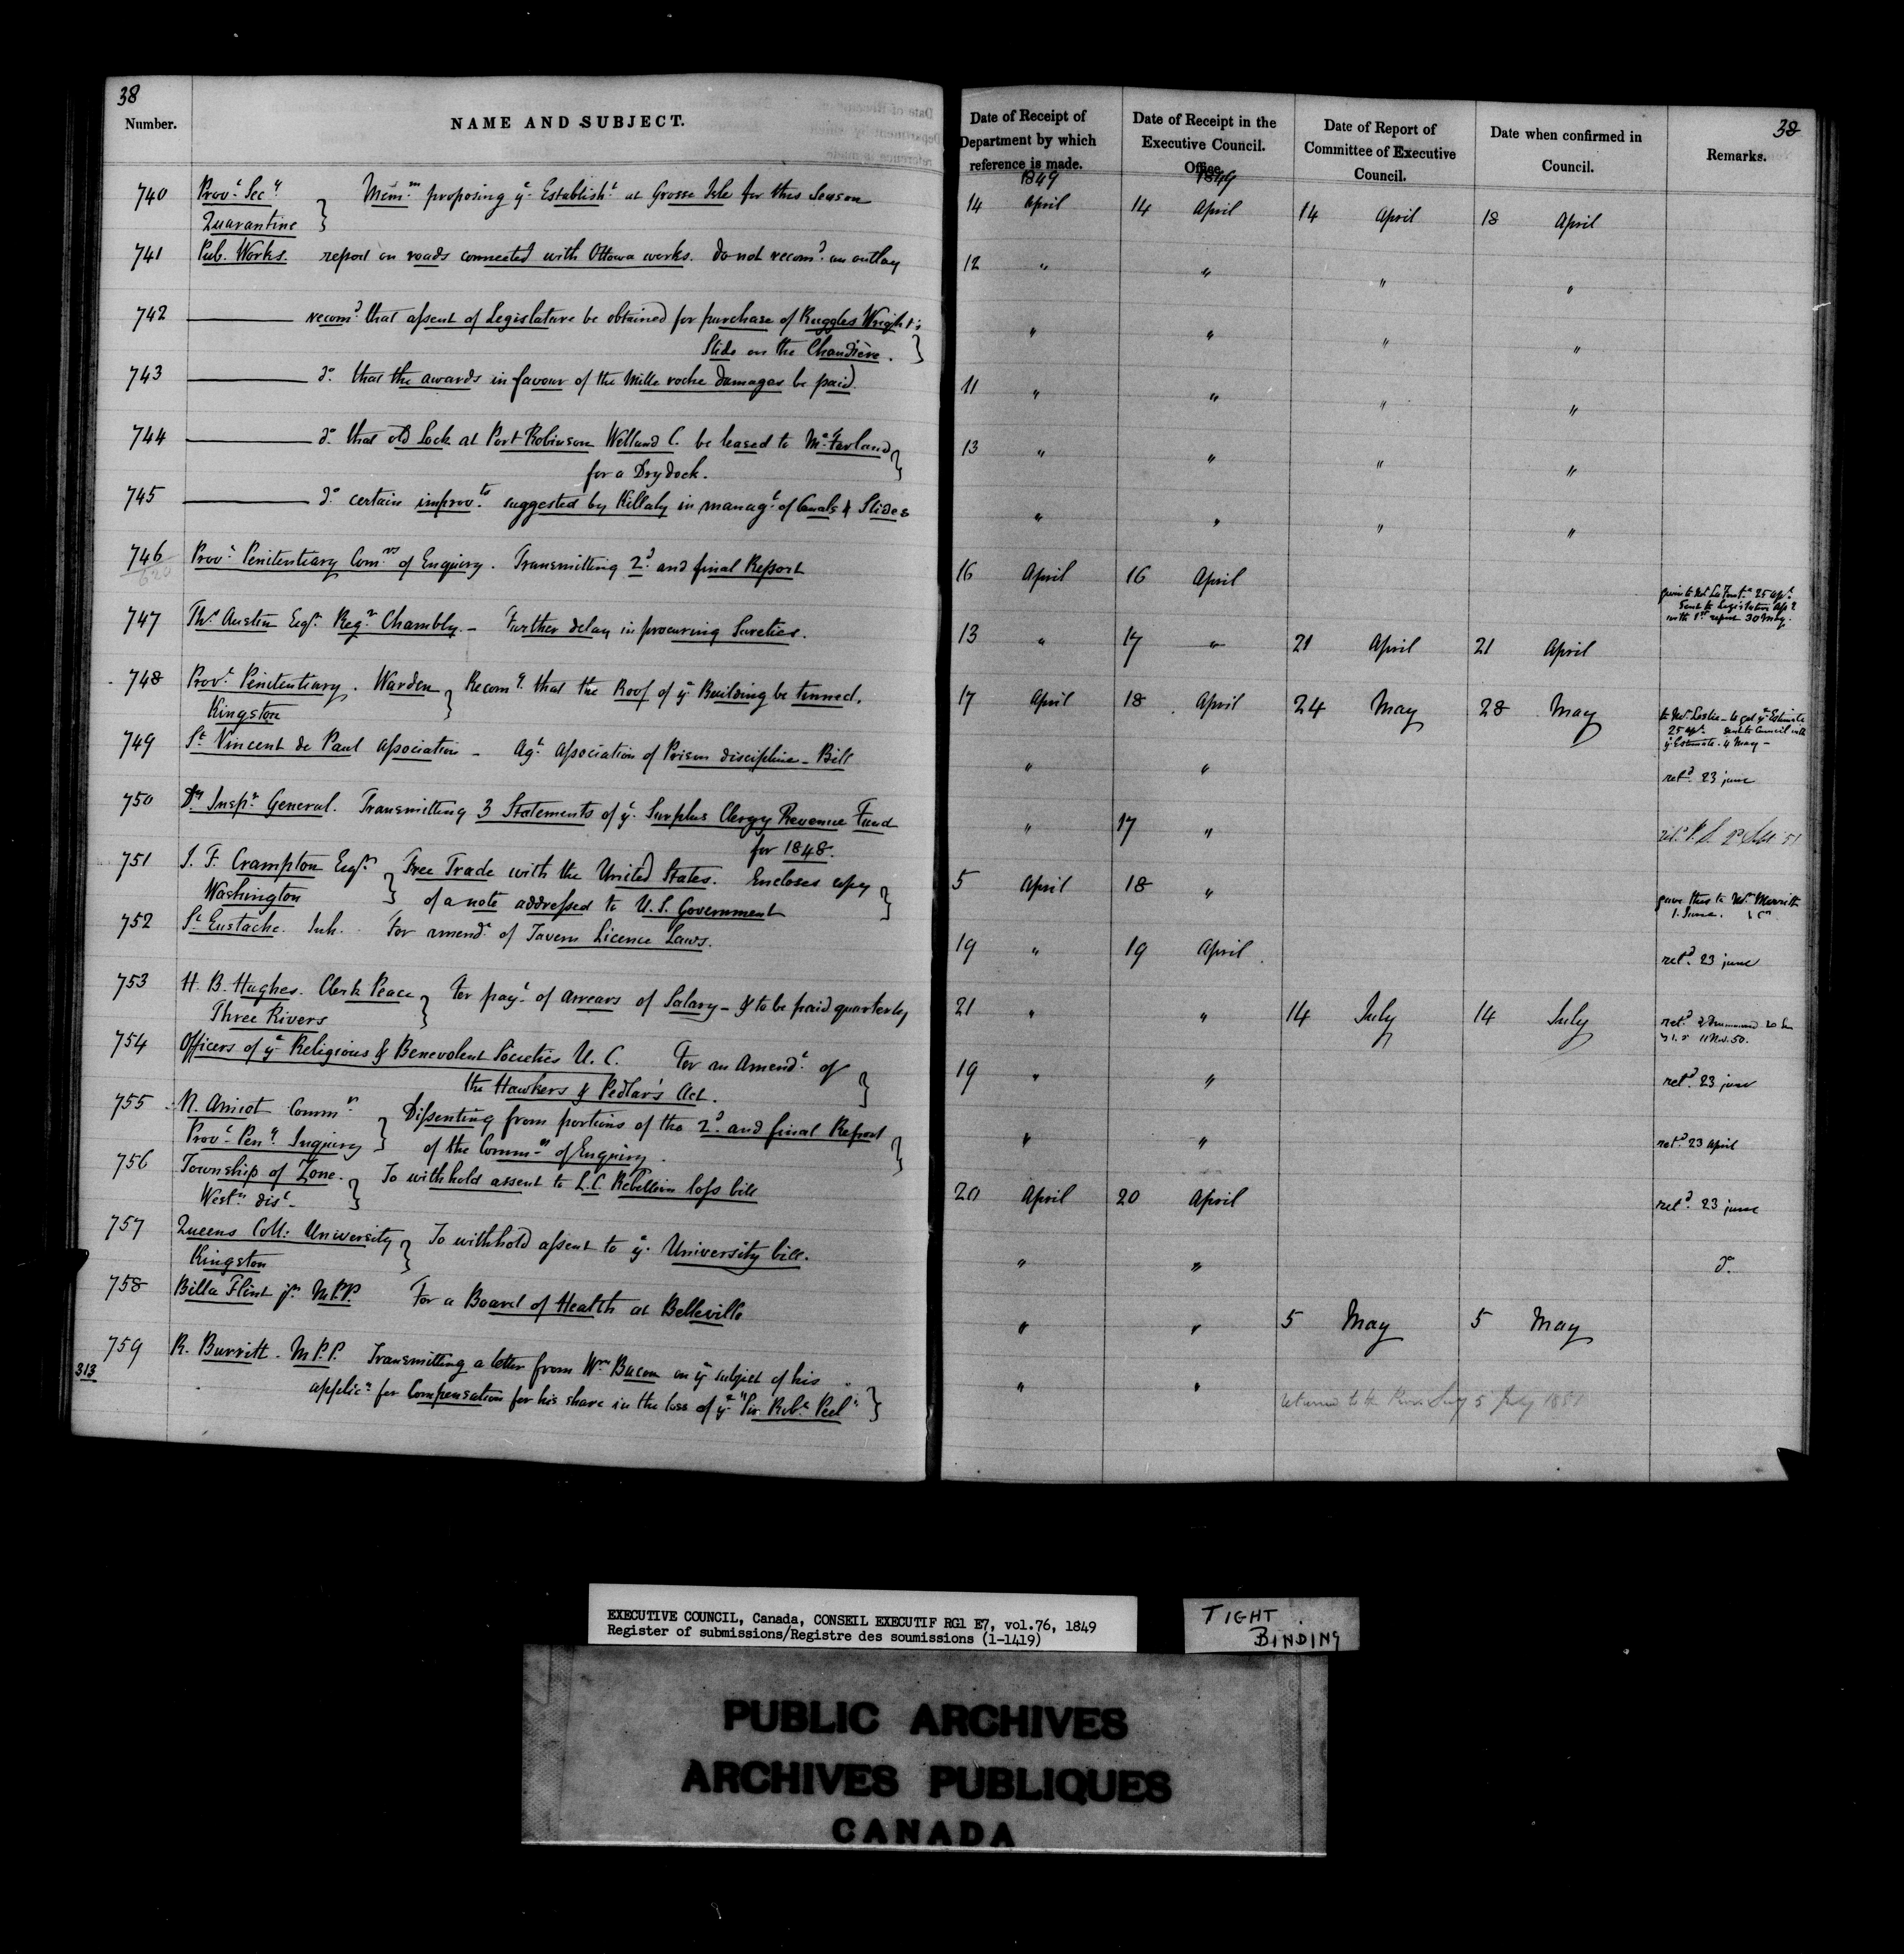 38
38
Number.
NAME AND SUBJECT.
Date of Receipt of Department by which reference is made.
Date of Receipt in the Executive Council. Office
Date of Report of Committee of Executive Council.
Date when confirmed in Council.
Remarks.
1849
1849
740 Provl. Secy. Quarantine } Memm. proposing ye. Establisht. at Grosse Isle for this Season 14 April 14 April 14 April 18 April
741 Pub. Works. report on roads connected with Ottawa works. do not recomd. an outlay 12 " " " "
742 ——— recomd. that assent of Legislature be obtained for purchase of Ruggles Wright's
Slide on the Chaudière. } " " " "
743 ——— do. that the awards in favour of the Mille roche damages be paid. 11 " " " "
744 ——— do. that old Lock at Port Robinson Welland C. be leased to McFarland
for a Dry dock. } 13 " " " "
745 ——— do. certain improvts. suggested by Killaly in managt. of Canals & Slides " " " "
746 Provl. Penitentiary Comrs. of Enquiry. Transmitting 2d. and final Report 16 April 16 April
620
25 Apl.
Sent to Legislature
with 1st report 30 May.
747 Ths. Austin Esqr. Regr. Chambly. – Further delay in procuring Sureties. 13 " 17 " 21 April 21 April
748 Provl. Penitentiary. Warden Kingston } Recomg. that the Roof of ye Building be tinned. 17 April 18 April 24 May 28 May
to Mr. Leslie – to get ye Estimate
25 Apl. Council with
ye Estimate. 4 May –
749 St. Vincent de Paul Association – Agt. Association of Prison discipline – Bill " " retd. 23 june
750 Dy. Inspr. General. Transmitting 3 Statements of ye. Surplus Clergy Revenue Fund
for 1848. " 17 "
751 J. F. Crampton Esqr. Washington } Free Trade with the United States. Encloses copy
of a note addressed to U.S. Government } 5 April 18 "
gave this to Mr. Merritt
1 June.
752 St. Eustache. Inh. For amendt. of Tavern Licence Laws. 19 " 19 April. retd. 23 june
753 H. B. Hughes. Clerk Peace Three Rivers } For payt. of arrears of Salary – & to be paid quarterly 21 " " 14 July 14 July
retd. Drummond 20
11 Nov. 50.
754 Officers of ye Religious & Benevolent Societies U. C. For an Amendt. of
the Hawkers & Pedlar's Act. } 19 " " retd. 23 june
755 N. Amiot Commr. Provl. Peny. Inquiry } Dissenting from portions of the 2d. and final Report
of the Commrs. of Enquiry. } " " retd. 23 April
756 Township of Zone. Westn. dist. } To withhold assent to L.C. Rebellion loss bill 20 April 20 April retd. 23 june
757 Queens Coll: University Kingston } To withhold assent to ye. University bill. " " do.
758 Billa Flint jr. M.P.P. For a Board of Health at Belleville " " 5 May 5 May
759 R. Burritt. M.P.P. Transmitting a letter from Wm. Bacon on ye subject of his
313 applicn. for Compensation for his share in the loss of ye "Sir Robt. Peel" } " "
returned to the Prov. Secy 5 July 1851
EXECUTIVE COUNCIL, Canada, CONSEIL EXECUTIF RG1 E7, vol.76, 1849
Register of submissions/Registre des soumissions (1-1419)
TIGHT BINDING
PUBLIC ARCHIVES
ARCHIVES PUBLIQUES
CANADA